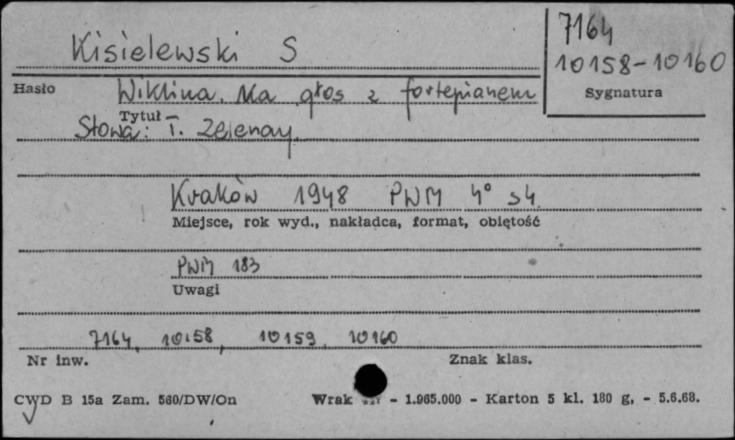 Kisielewski S
7164
10158-10160
Hasło
Sygnatura
Wiklina. Na głos z fortepianem
Tytuł
Słowa: T. Zelenay.
Kraków 1948 PWM 4° s4
Miejsce, rok wyd., nakładca, format, objętość
PWM 183
Uwagi
7164, 10158, 10159, 10160
Nr inw.
Znak klas.
CWD B 15a Zam. 560/DW/On
Wrak - 1.965.000 - Karton 5 kl. 180 g, - 5.6.68.